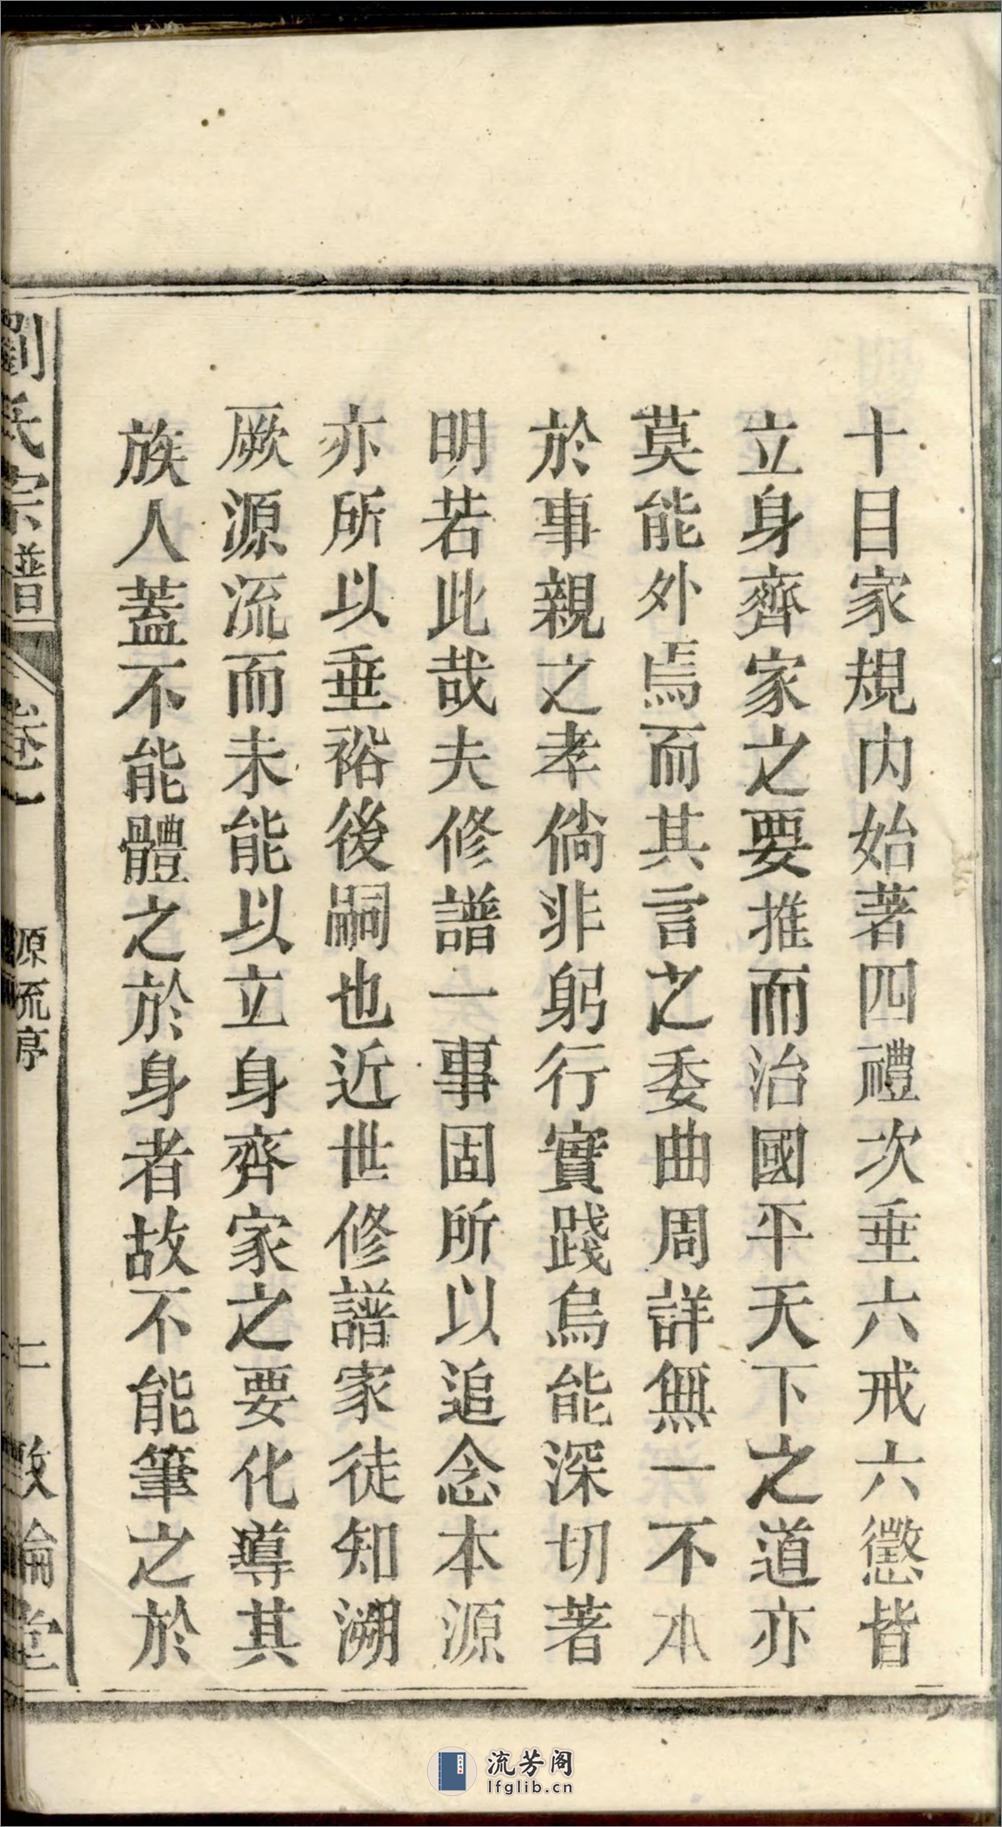 十目家規内始著四禮次垂六戒六懲皆
立身齊家之要推而治國平天下之道亦
莫能外焉而其言之委曲周詳無一不本
於事親之孝倘非躬行實踐烏能深切著
明若此哉夫修譜一事固所以追念本源
亦所以垂裕後嗣也近世修譜家徒知溯
厥源流而未能以立身齊家之要化導其
族人蓋不能體之於身者故不能筆之於
劉氏宗譜
卷一
源流序
二
敦倫堂
流芳阁
lfglib.cn